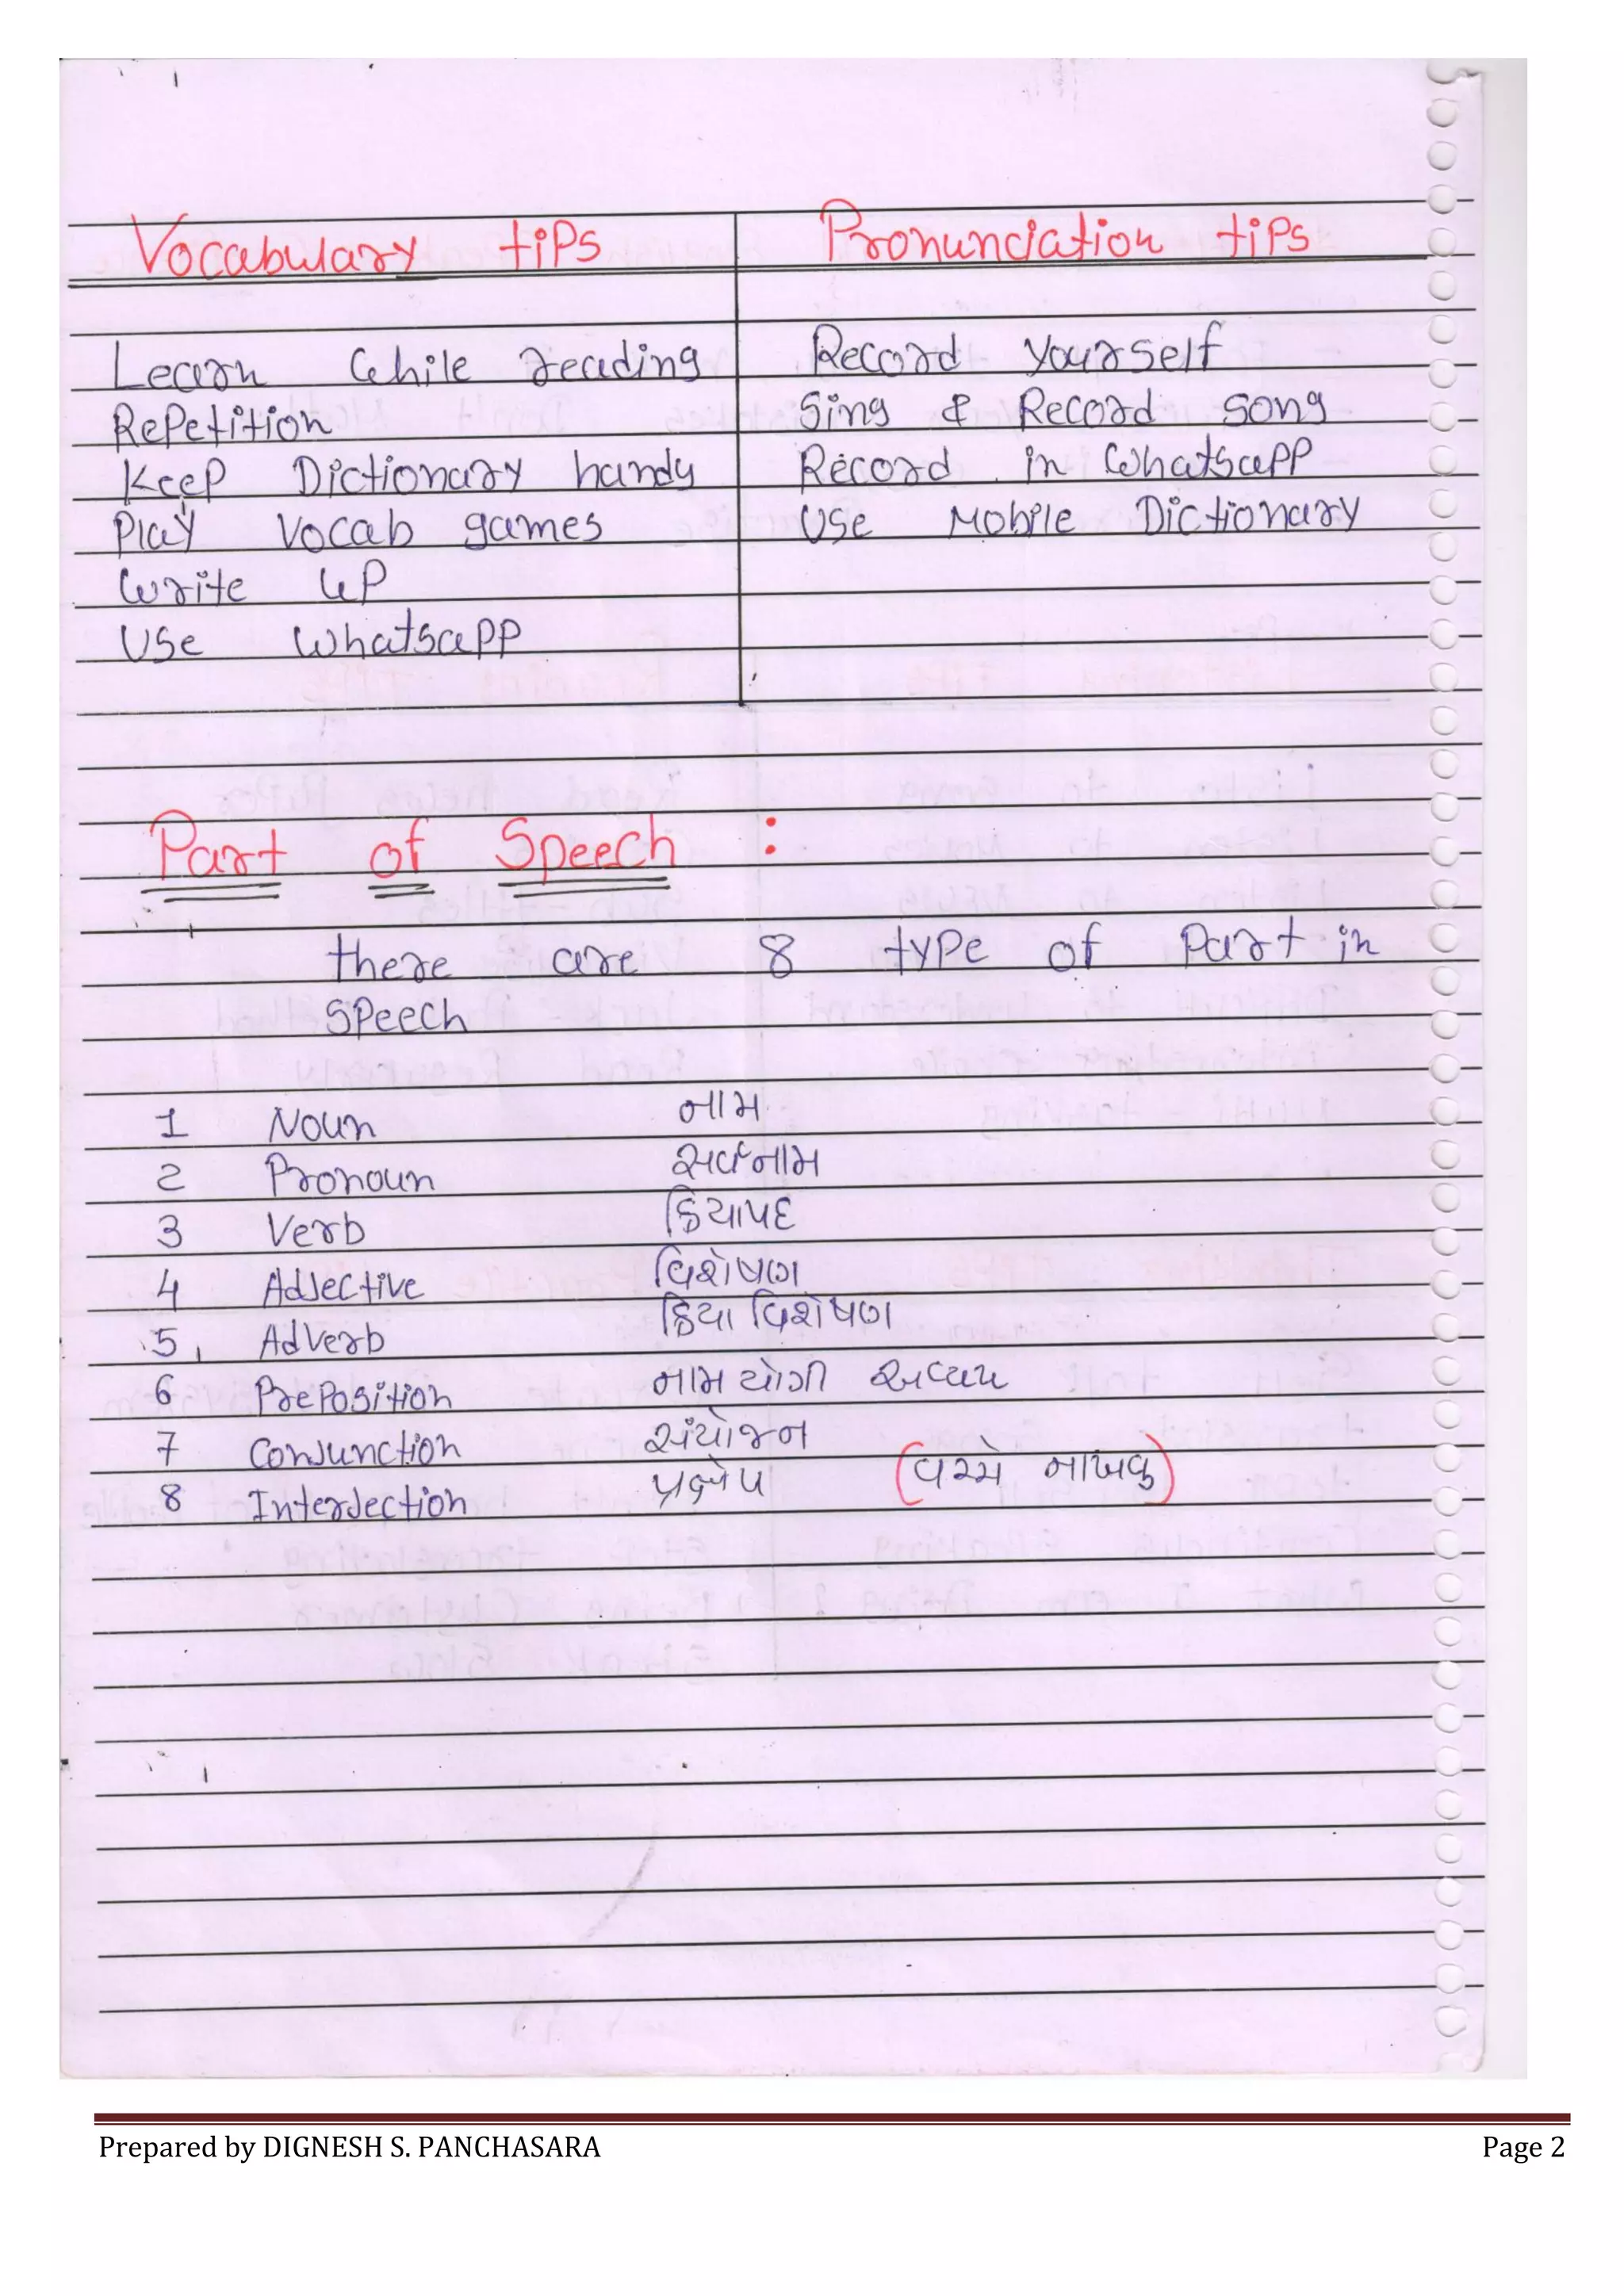 Vocabulary tips Pronunciation tips
Learn while reading Record yourself
Repetition Sing & Record song
Keep Dictionary handy Record in Whatsapp
Play vocab games Use Mobile Dictionary
Write up
Use Whatsapp
Part of Speech :
there are 8 type of Part in
Speech
1 Noun નામ
2 Pronoun સર્વનામ
3 Verb ક્રિયાપદ
4 Adjective વિશેષણ
5 Adverb ક્રિયા વિશેષણ
6 Preposition નામયોગી અવ્યય
7 Conjunction સંયોજન
8 Interjection પ્રક્ષેપ (વચ્ચે નાખવુ)
Prepared by DIGNESH S. PANCHASARA Page 2